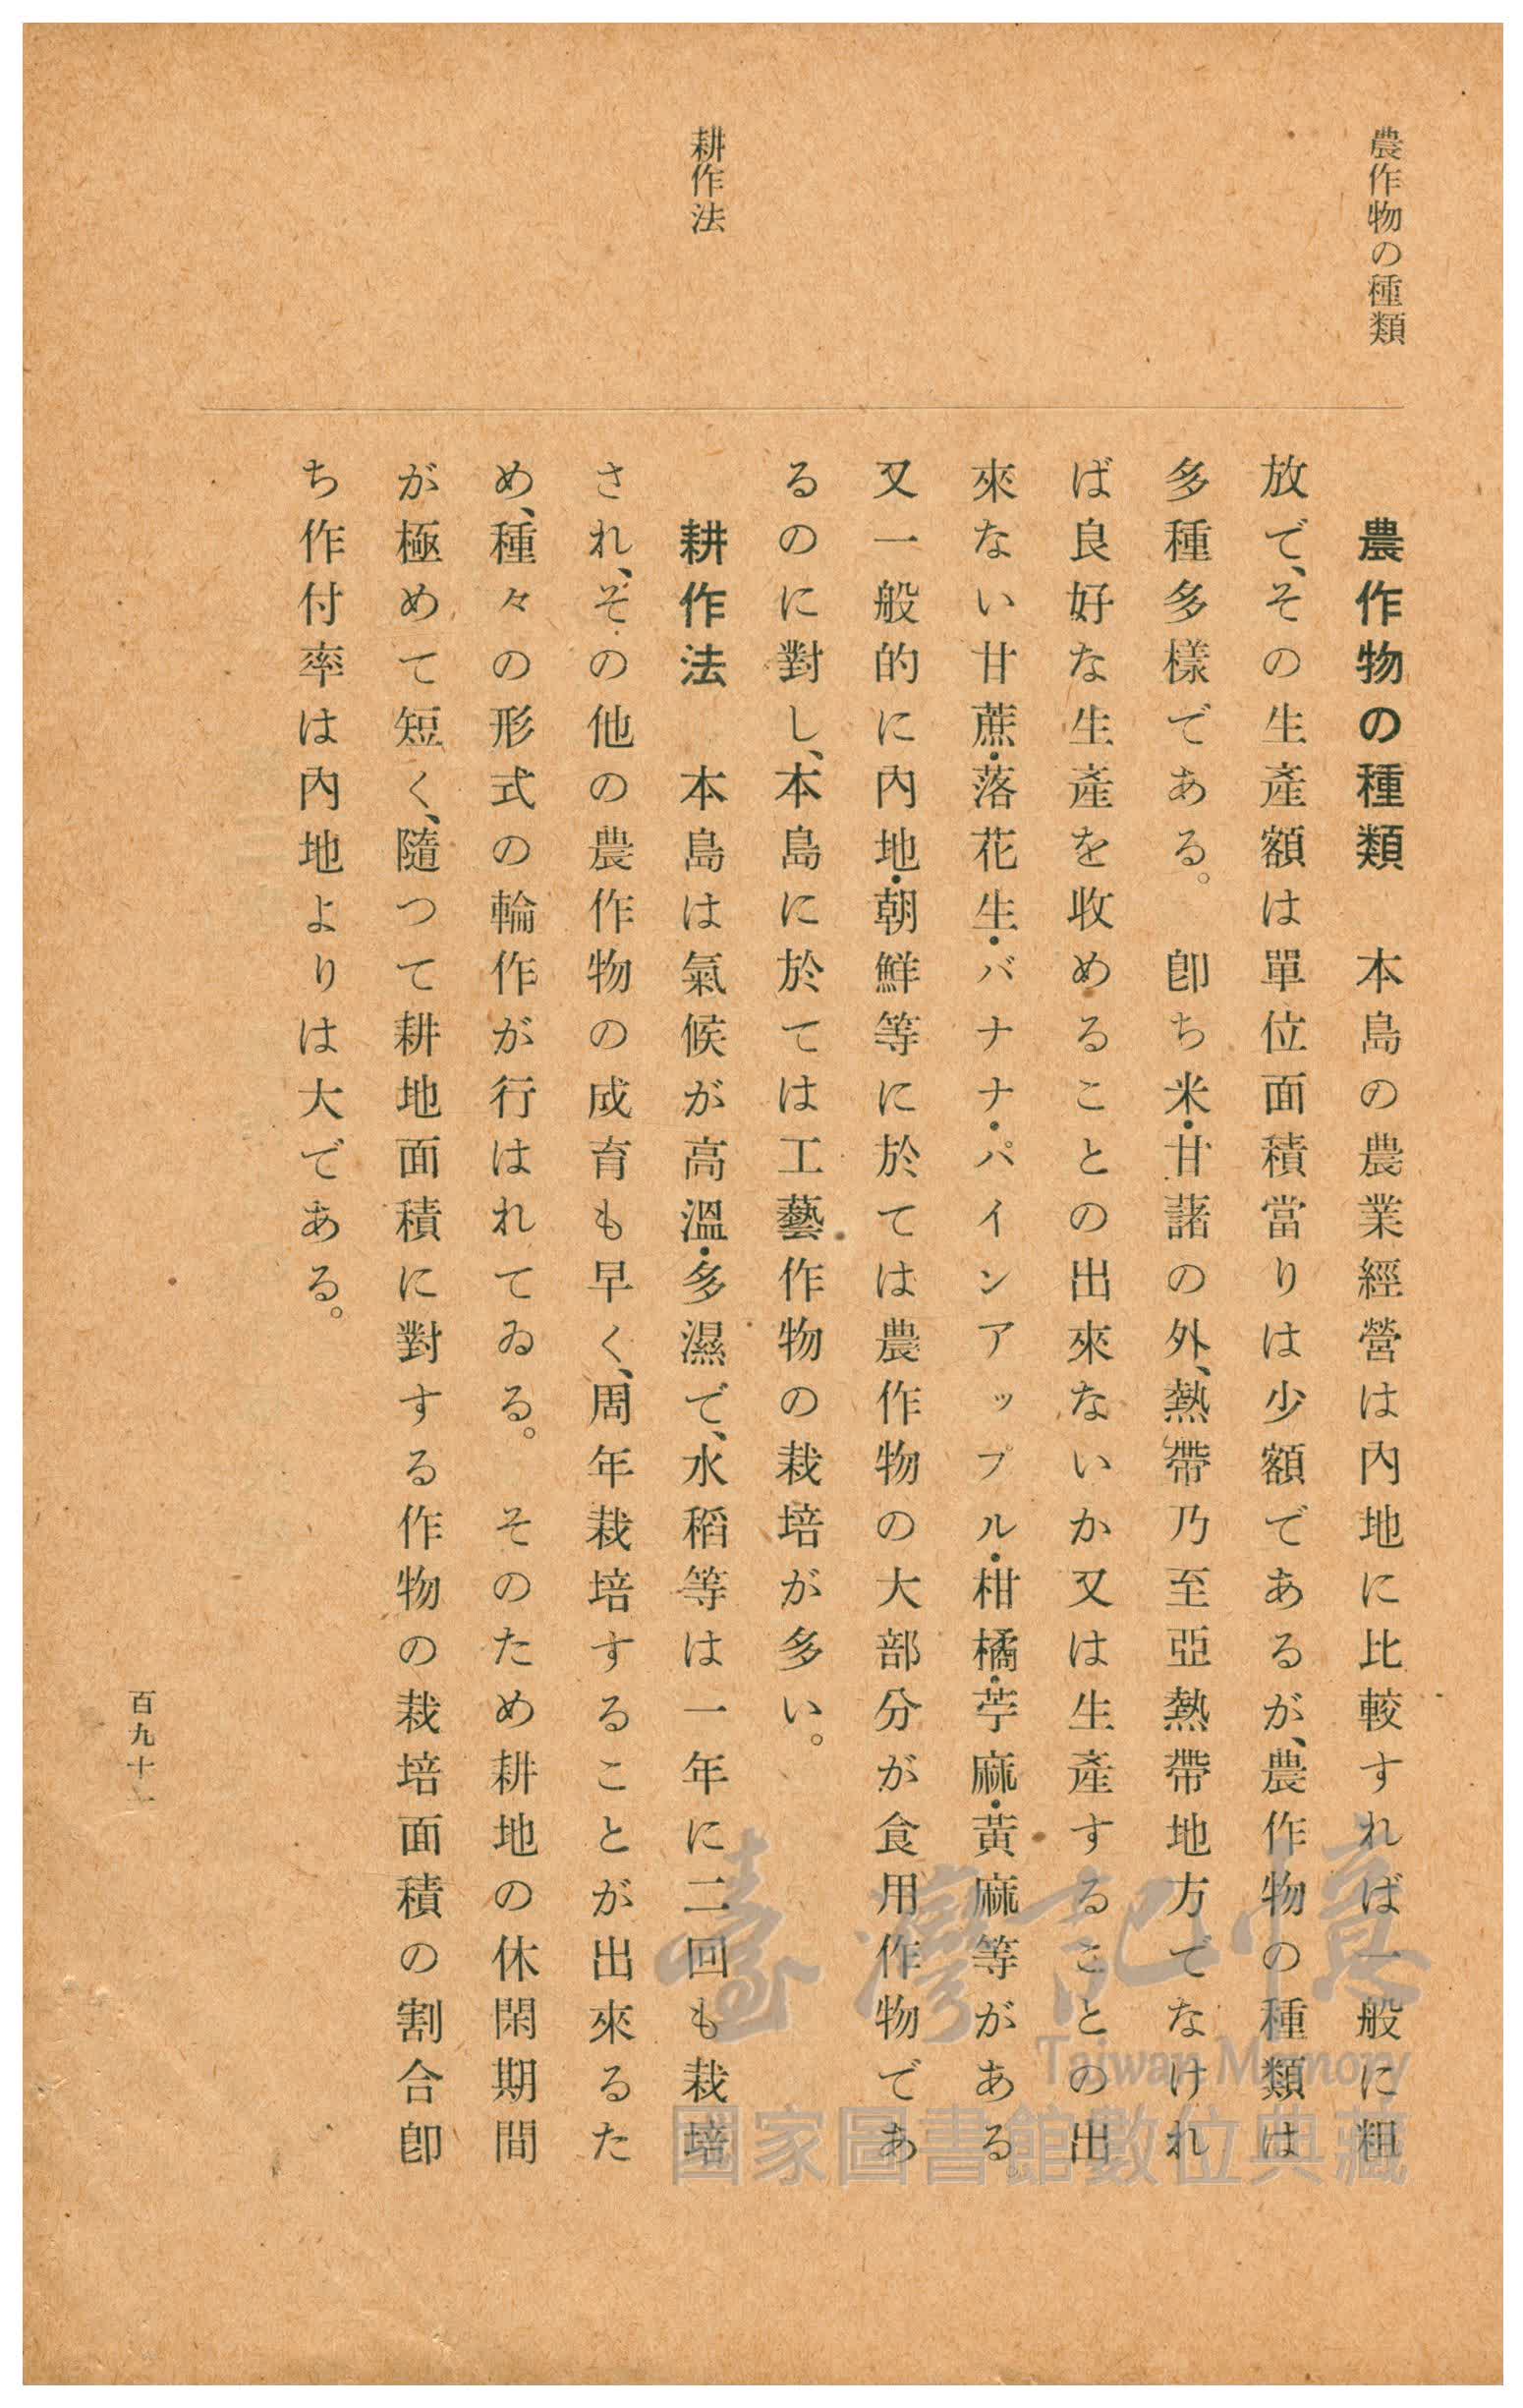 農作物の種類
農作物の種類　本島の農業經營は內地に比較すれば一般に粗
放で、その生產額は單位面積當りは少額であるが、農作物の種類は
多種多樣である。　卽ち米・甘藷の外、熱帶乃至亞熱帶地方でなけれ
ば良好な生產を收めることの出來ないか又は生產することの出
來ない甘蔗・落花生・バナナ・パインアップル・柑橘・苧麻・黃麻等がある。
又一般的に內地・朝鮮等に於ては農作物の大部分が食用作物であ
るのに對し、本島に於ては工藝作物の栽培が多い。
耕作法
耕作法　本島は氣候が高溫・多濕で、水稻等は一年に二回も栽培
され、その他の農作物の成育も早く、周年栽培することが出來るた
め、種々の形式の輪作が行はれてゐる。　そのため耕地の休閑期間
が極めて短く、隨つて耕地面積に對する作物の栽培面積の割合卽
ち作付率は內地よりは大である。
百九十一
臺灣記憶
Taiwan Memory
國家圖書館數位典藏